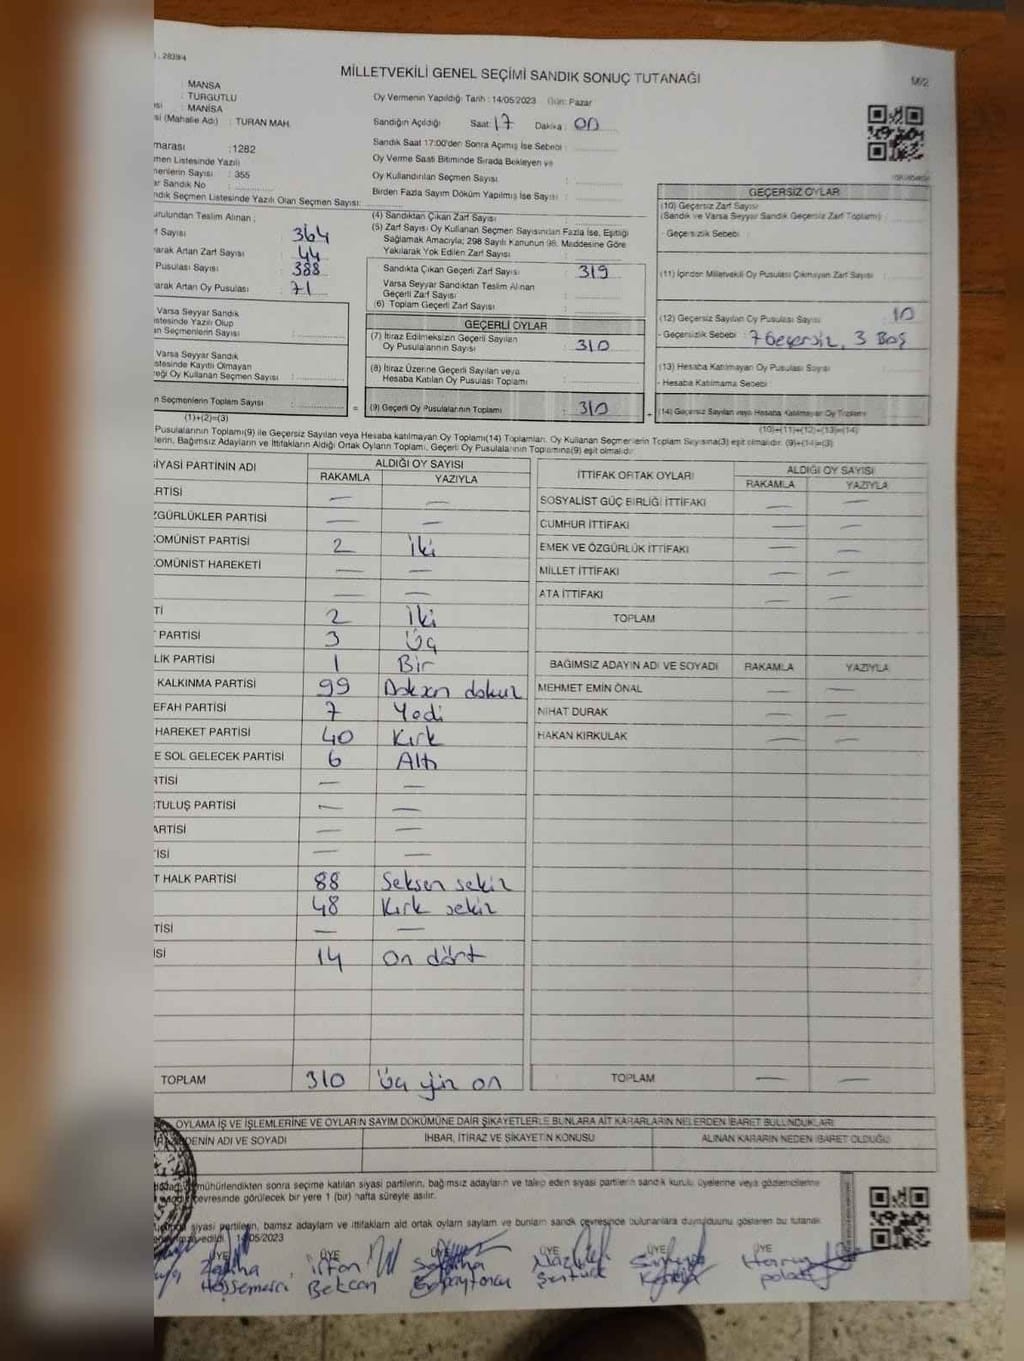 MİLLETVEKİLİ GENEL SEÇİMİ SANDIK SONUÇ TUTANAĞI
: MANSA
: TURGUTLU
: MANİSA
si (Mahalle Adı) : TURAN MAH.
marası : 1282
men Listesinde Yazılı
menlerin Sayısı : 355
ar Sandık No
ndık Seçmen Listesinde Yazılı Olan Seçmen Sayısı:
urulundan Teslim Alınan ;
f Sayısı 364
arak Artan Zarf Sayısı 44
Pusulası Sayısı 388
arak Artan Oy Pusulası : 71
Varsa Seyyar Sandık
istesinde Yazılı Olup
an Seçmenlerin Sayısı
Varsa Seyyar Sandık
stesinde Kayıtlı Olmayan
reği Oy Kullanan Seçmen Sayısı
n Seçmenlerin Toplam Sayısı
(1)+(2)=(3)
Oy Vermenin Yapıldığı Tarih : 14/05/2023 Gün: Pazar
Sandığın Açıldığı Saat: 17 Dakika : 00
Sandık Saat 17:00'den Sonra Açılmış İse Sebebi :
Oy Verme Saati Bitiminde Sırada Bekleyen ve
Oy Kullandırılan Seçmen Sayısı
Birden Fazla Sayım Döküm Yapılmış İse Sayısı :
(4) Sandıktan Çıkan Zarf Sayısı
(5) Zarf Sayısı Oy Kullanan Seçmen Sayısından Fazla İse, Eşitliği
Sağlamak Amacıyla; 298 Sayılı Kanunun 98. Maddesine Göre
Yakılarak Yok Edilen Zarf Sayısı
Sandıkta Çıkan Geçerli Zarf Sayısı : 319
Varsa Seyyar Sandıktan Teslim Alınan
Geçerli Zarf Sayısı
(6) Toplam Geçerli Zarf Sayısı
GEÇERLİ OYLAR
(7) İtiraz Edilmeksizin Geçerli Sayılan
Oy Pusulalarının Sayısı : 310
(8) İtiraz Üzerine Geçerli Sayılan veya
Hesaba Katılan Oy Pusulası Toplamı
(9) Geçerli Oy Pusulalarının Toplamı : 310
GEÇERSİZ OYLAR
(10) Geçersiz Zarf Sayısı
(Sandık ve Varsa Seyyar Sandık Geçersiz Zarf Toplamı)
- Geçersizlik Sebebi :
(11) İçinden Milletvekili Oy Pusulası Çıkmayan Zarf Sayısı :
(12) Geçersiz Sayılan Oy Pusulası Sayısı : 10
- Geçersizlik Sebebi : 7 Geçersiz, 3 Boş
(13) Hesaba Katılmayan Oy Pusulası Sayısı
- Hesaba Katılmama Sebebi
(14) Geçersiz Sayılan veya Hesaba Katılmayan Oy Toplamı
(10)+(11)+(12)+(13)=(14)
Pusulalarının Toplamı(9) ile Geçersiz Sayılan veya Hesaba katılmayan Oy Toplamı(14) Toplamları, Oy Kullanan Seçmenlerin Toplam Sayısına(3) eşit olmalıdır. (9)+(14)=(3)
lerin, Bağımsız Adayların ve İttifakların Aldığı Ortak Oyların Toplamı, Geçerli Oy Pusulalarının Toplamına(9) eşit olmalıdır.
SİYASİ PARTİNİN ADI ALDIĞI OY SAYISI
RAKAMLA YAZIYLA
RTİSİ — —
ZGÜRLÜKLER PARTİSİ — —
KOMÜNİST PARTİSİ 2 İki
KOMÜNİST HAREKETİ — —
— —
Tİ 2 İki
PARTİSİ 3 Üç
LİK PARTİSİ 1 Bir
KALKINMA PARTİSİ 99 Doksan dokuz
EFAH PARTİSİ 7 Yedi
HAREKET PARTİSİ 40 Kırk
E SOL GELECEK PARTİSİ 6 Altı
RTİSİ — —
TULUŞ PARTİSİ — —
ARTİSİ — —
İSİ — —
T HALK PARTİSİ 88 Seksen sekiz
48 Kırk sekiz
TİSİ — —
İSİ 14 On dört
TOPLAM 310 Üç yüz on
İTTİFAK ORTAK OYLARI ALDIĞI OY SAYISI
RAKAMLA YAZIYLA
SOSYALİST GÜÇ BİRLİĞİ İTTİFAKI — —
CUMHUR İTTİFAKI — —
EMEK VE ÖZGÜRLÜK İTTİFAKI — —
MİLLET İTTİFAKI — —
ATA İTTİFAKI — —
TOPLAM
BAĞIMSIZ ADAYIN ADI VE SOYADI RAKAMLA YAZIYLA
MEHMET EMİN ÖNAL — —
NİHAT DURAK — —
HAKAN KIRKULAK — —
TOPLAM — —
OYLAMA İŞ VE İŞLEMLERİNE VE OYLARIN SAYIM DÖKÜMÜNE DAİR ŞİKAYETLERLE BUNLARA AİT KARARLARIN NELERDEN İBARET BULUNDUKLARI
DENİN ADI VE SOYADI İHBAR, İTİRAZ VE ŞİKAYETİN KONUSU ALINAN KARARIN NEDEN İBARET OLDUĞU
mühürlendikten sonra seçime katılan siyasi partilerin, bağımsız adayların ve talep eden siyasi partilerin sandık kurulu üyelerine veya gözlemcilerine
çevresinde görülecek bir yere 1 (bir) hafta süreyle asılır.
siyasi partilerin, bamsz adaylarn ve ittifaklarn ald ortak oylarn saylarn ve bunların sandk çevresinde bulunanlara duyrulduunu gösteren bu tutanak
14/05/2023
ÜYE ÜYE ÜYE ÜYE ÜYE ÜYE
Bekcan Şentürk Harun
polat